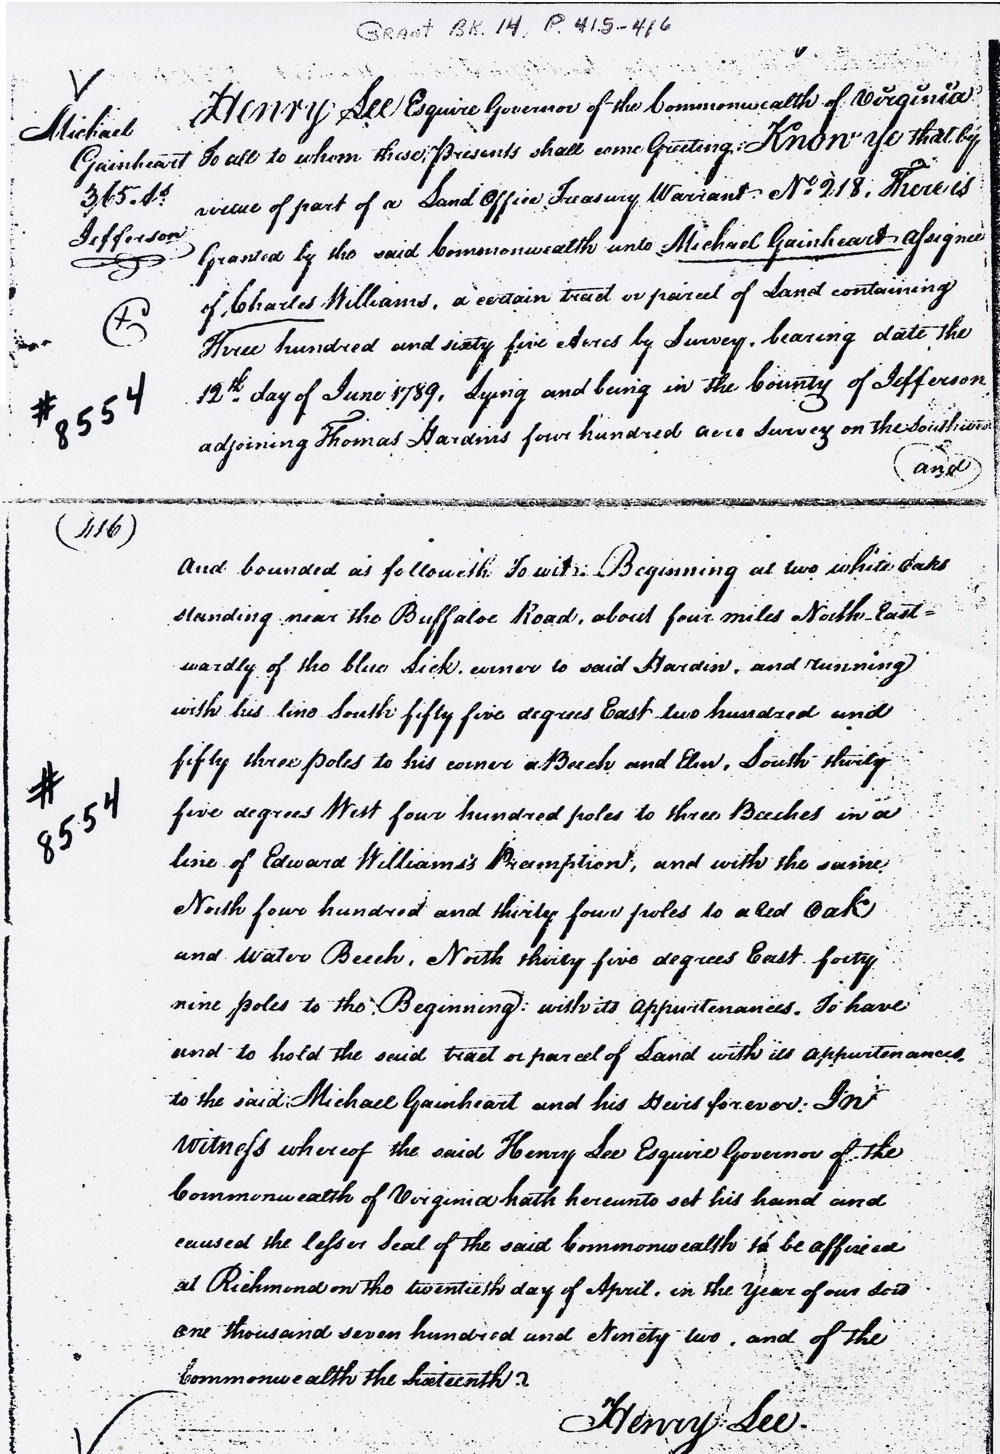 Grant Bk. 14, P. 415-416
Michael
Gainheart
365. As
Jefferson
#
8554
Henry Lee Esquire Governor of the Commonwealth of Virginia
To all to whom these Presents shall come Greeting: Know ye that by
virtue of part of a Land Office Treasury Warrant No 218. There is
Granted by the said Commonwealth unto Michael Gainheart assignee
of Charles Williams, a certain tract or parcel of Land containing
Three hundred and sixty five Acres by Survey, bearing date the
12th day of June 1789. Lying and being in the County of Jefferson
adjoining Thomas Hardins four hundred acre Survey on the
and
(416)
And bounded as followeth To wit: Beginning at two white oaks
standing near the Buffaloe Road, about four miles North East=
wardly of the blue Lick. corner to said Hardin, and running
with his line South fifty five degrees East two hundred and
fifty three poles to his corner a Beech and Elm, South thirty
#
8554
five degrees West four hundred poles to three Beeches in a
line of Edward Williams's Preemption, and with the same
North four hundred and thirty four poles to a Red Oak
and Water Beech, North thirty five degrees East forty
nine poles to the Beginning: with its appurtenances. To have
and to hold the said tract or parcel of Land with its appurtenances.
to the said Michael Gainheart and his Heirs forever: In
Witness whereof the said Henry Lee Esquire Governor of the
Commonwealth of Virginia hath hereunto set his hand and
caused the lesser Seal of the said Commonwealth to be affixed
at Richmond on the twentieth day of April, in the Year of our Lord
one thousand seven hundred and Ninety two, and of the
Commonwealth the Sixteenth
Henry Lee.